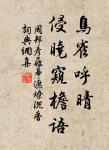 鳥雀呼晴
侵曉窺檐語
周邦彥蘇幕遮燎沉香
詞典網集